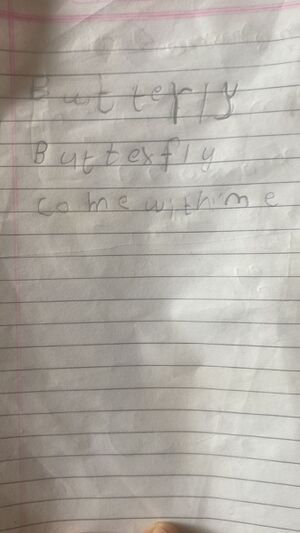 Butterfly
Butterfly
come with me